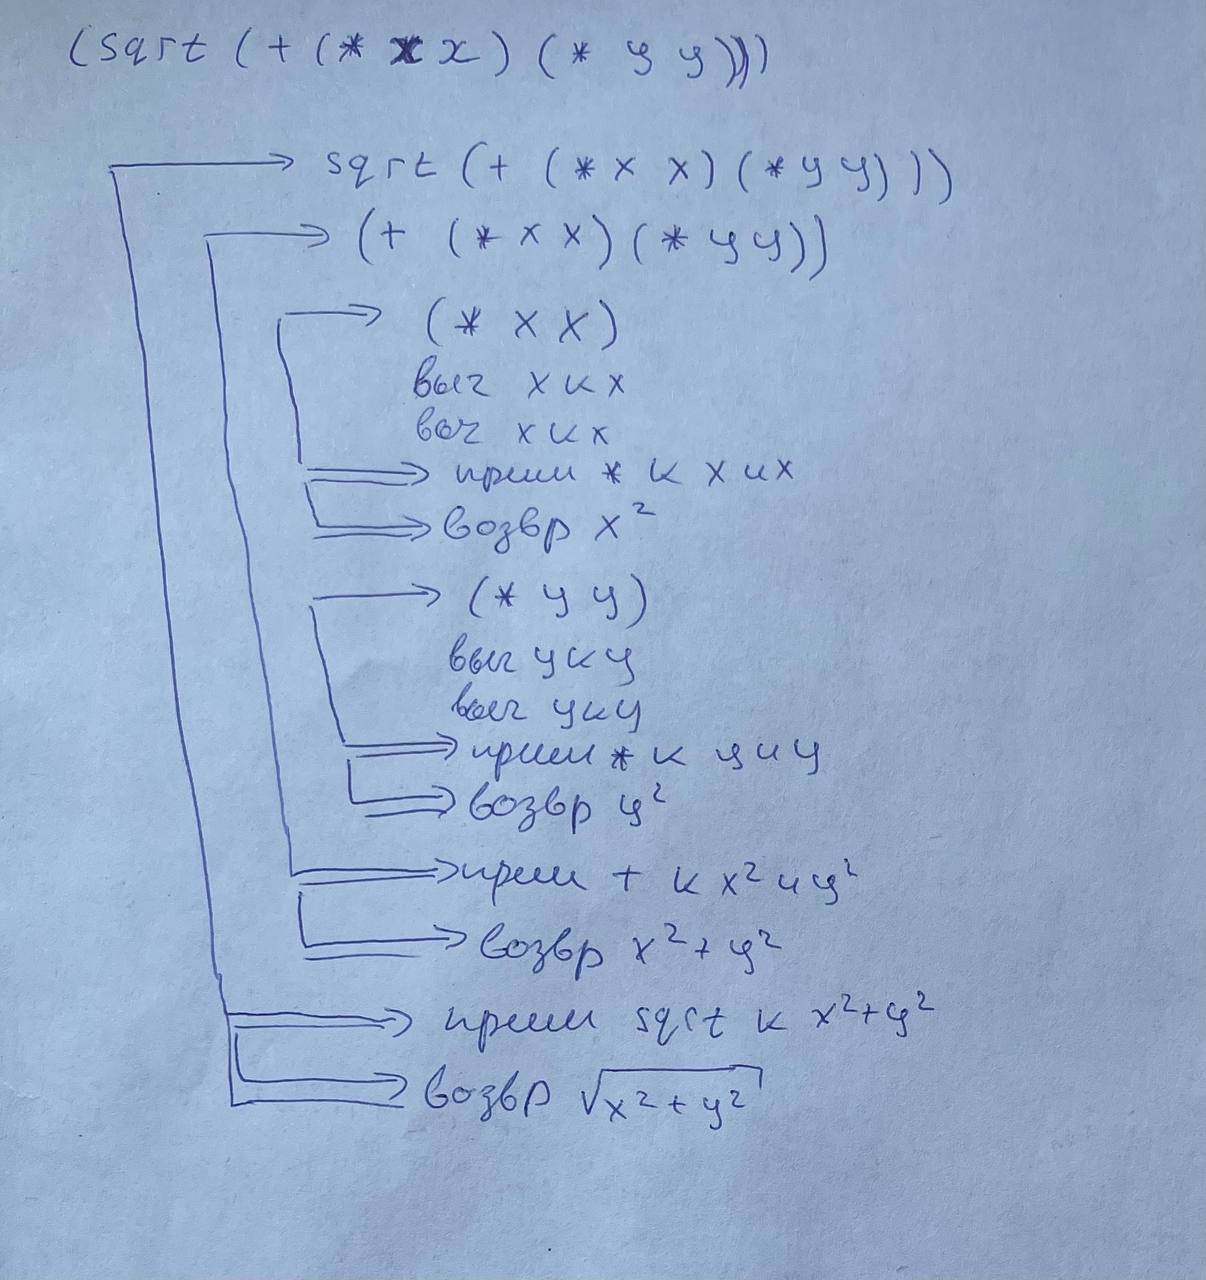 (sqrt (+ (* x x) (* y y)))
sqrt (+ (* x x) (* y y)))
(+ (* x x) (* y y))
(* x x)
выч x к x
выч x к x
прим * к x и x
возвр x²
(* y y)
выч y к y
выч y к y
прим * к y и y
возвр y²
прим + к x² и y²
возвр x² + y²
прим sqrt к x²+y²
возвр √x² + y²